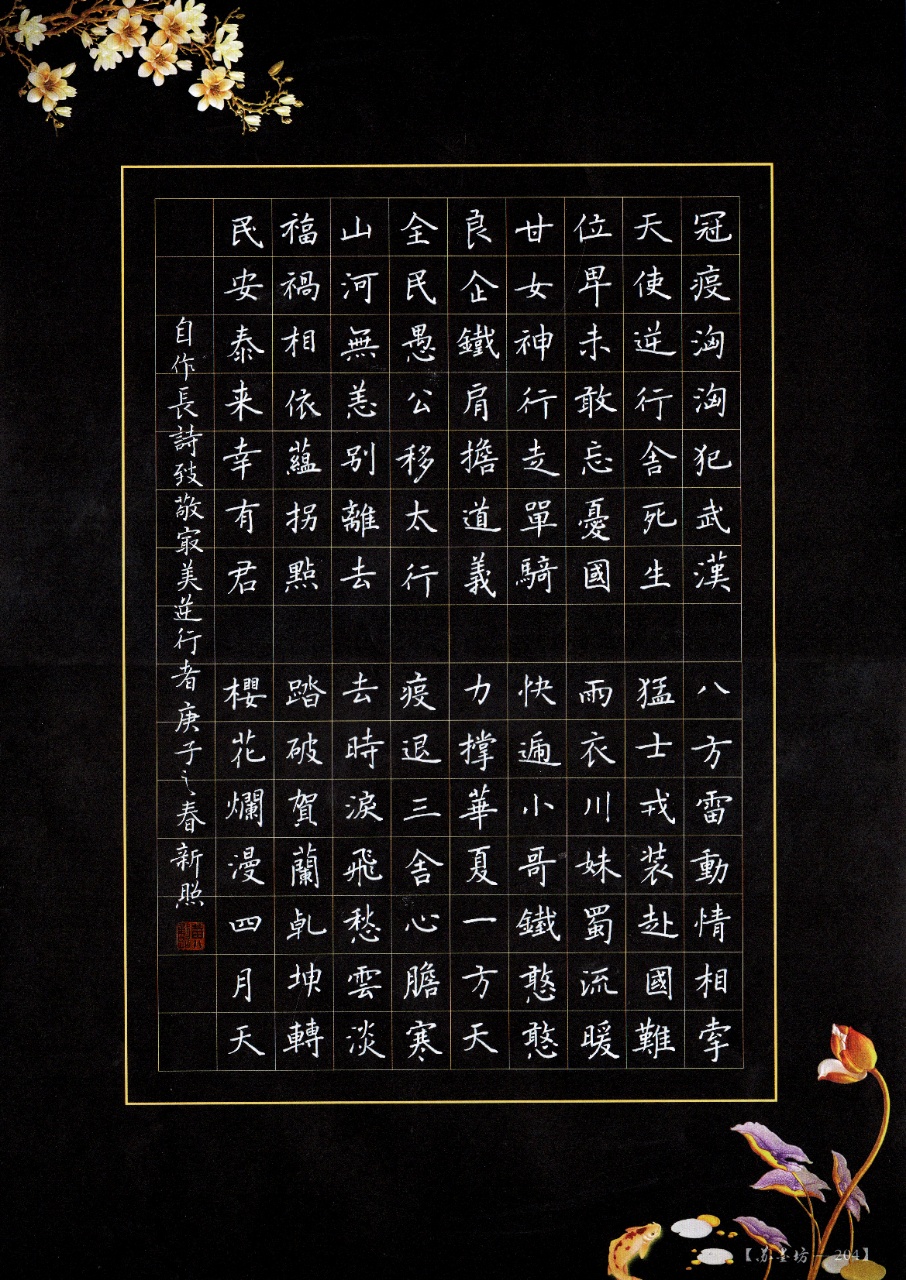 冠疫洶洶犯武漢 八方雷動情相牽
天使逆行舍死生 猛士戎装赴國難
位卑未敢忘憂國 雨衣川妹蜀流暖
甘女神行走單騎 快遞小哥鐵憨憨
良企鐵肩擔道義 力撑華夏一方天
全民愚公移太行 疫退三舍心膽寒
山河無恙别離去 去時淚飛愁雲淡
福禍相依蘊拐點 踏破賀蘭乾坤轉
民安泰来幸有君 櫻花爛漫四月天
自作長詩致敬冣美逆行者庚子之春新照
【苏墨坊－204】